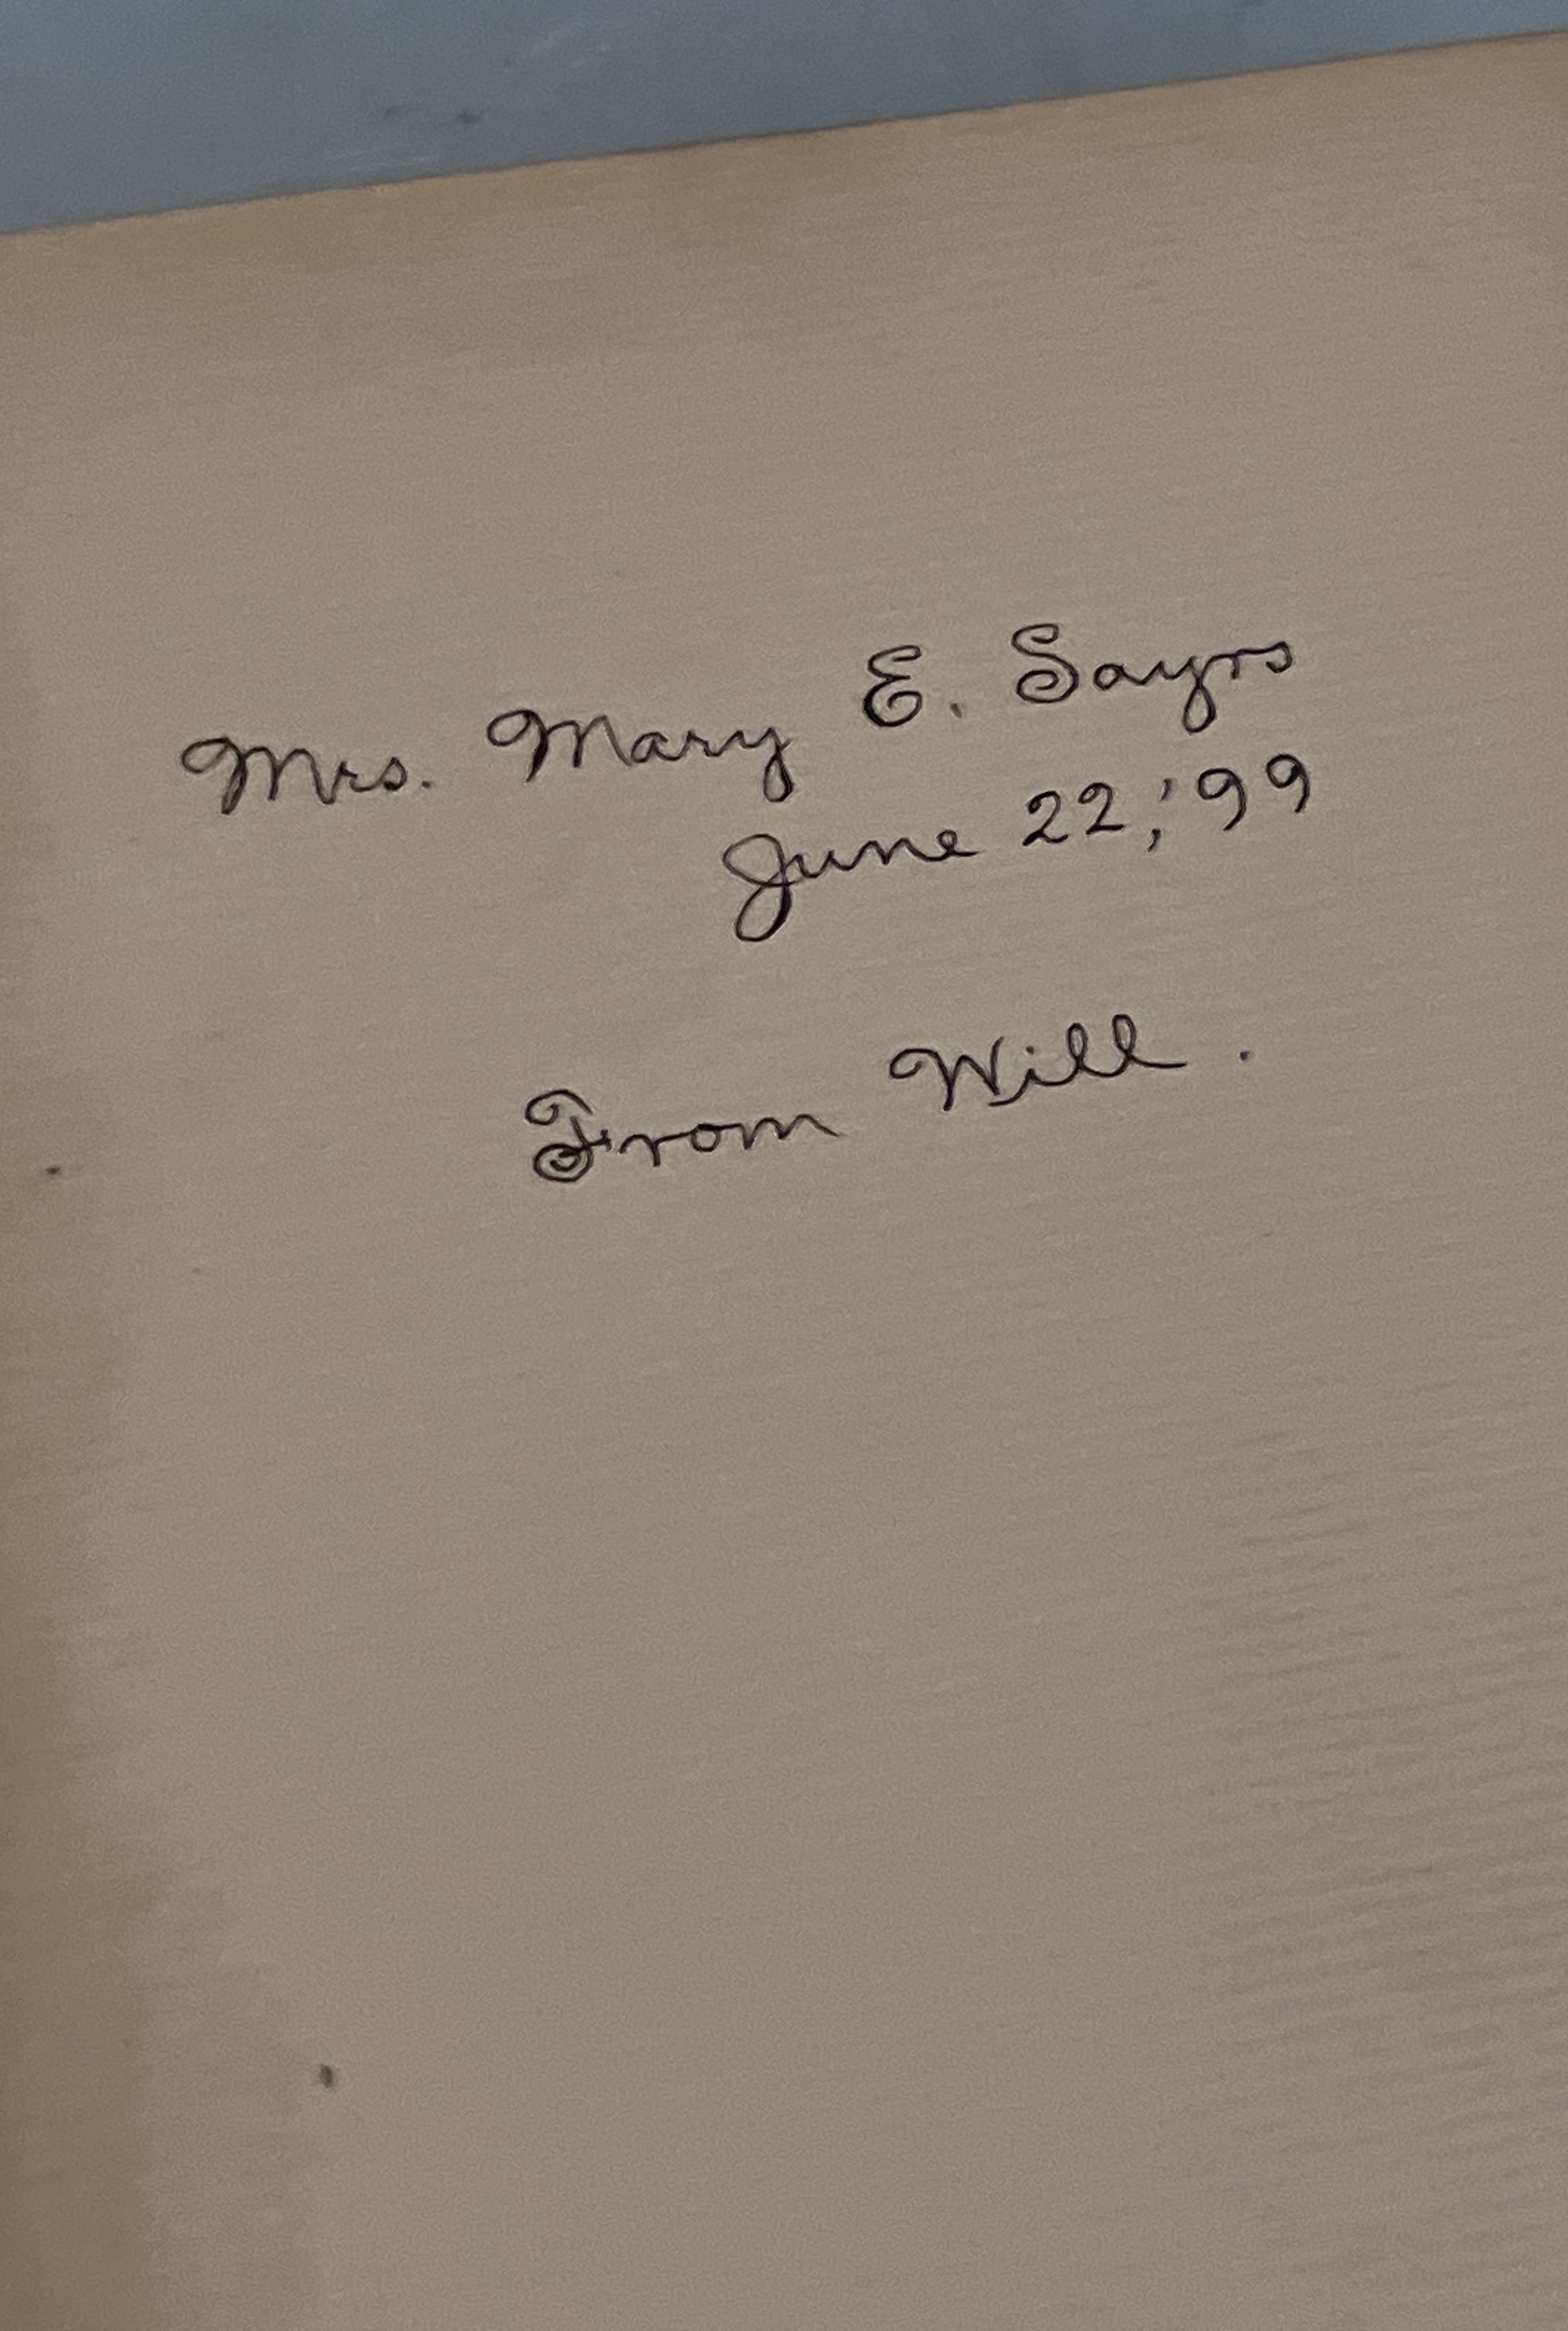 Mrs. Mary E. Sayrs
June 22, '99
From Will.